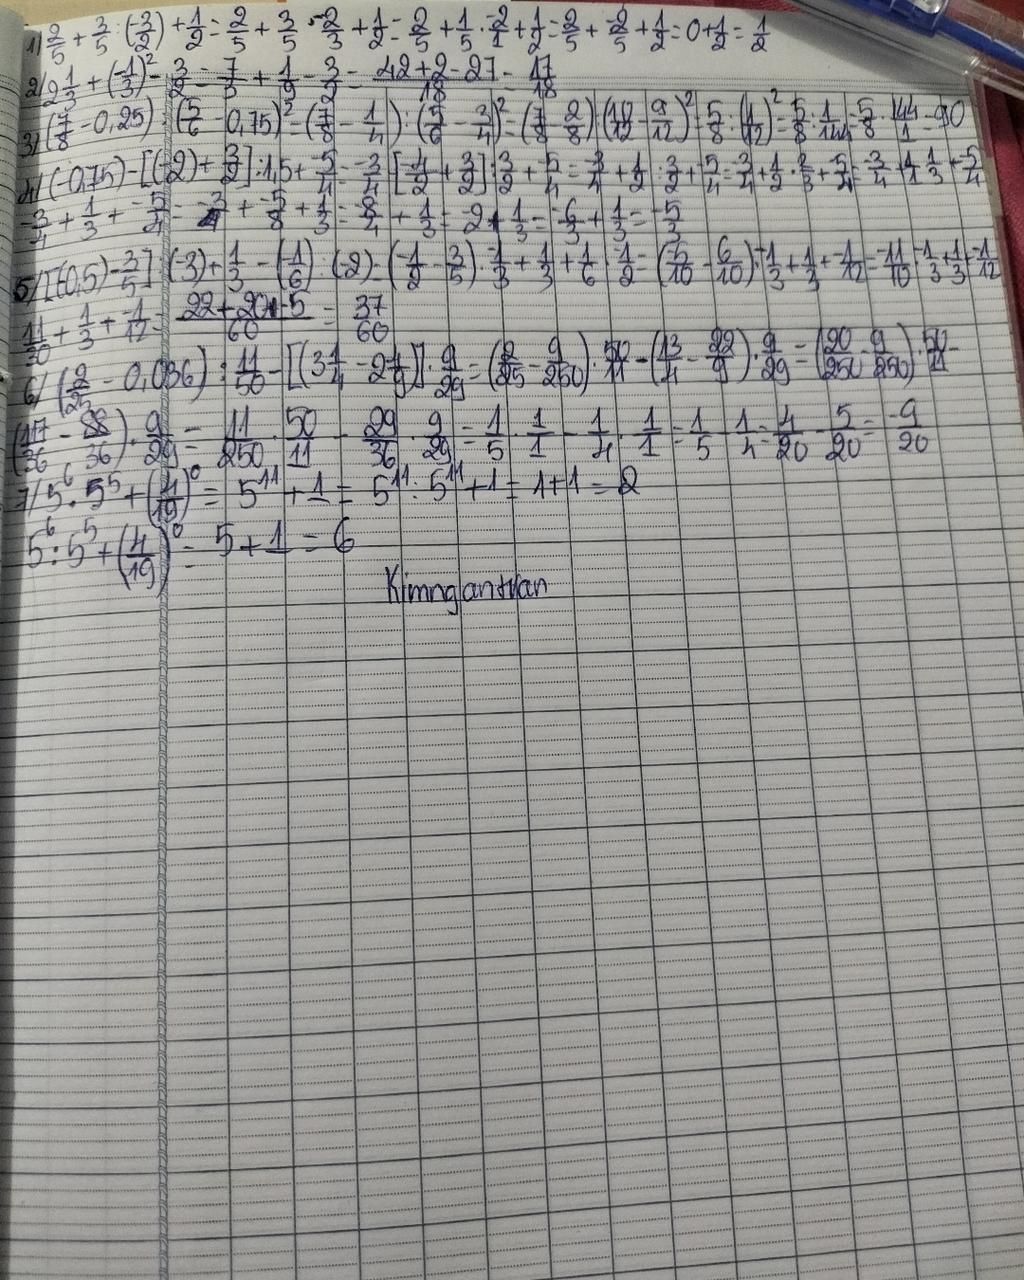 1) 2/5 + 3/5 : (-3/2) + 1/2 = 2/5 + 3/5 · -2/3 + 1/2 = 2/5 + 1/5 · -2/1 + 1/2 = 2/5 + -2/5 + 1/2 = 0 + 1/2 = 1/2
2/ 2 1/3 + (-1/3)² - 3/2 = 7/3 + 1/9 - 3/2 = 42+2-27/18 = 17/18
3/ (7/8 - 0,25) : (5/6 - 0,75)² = (7/8 - 1/4) : (5/6 - 3/4)² = (7/8 - 2/8) : (10/12 - 9/12)² = 5/8 : (1/12)² = 5/8 : 1/144 = 5/8 · 144/1 = 90
4/ (-0,75) - [(-2) + 3/2] : 1,5 + -5/4 = -3/4 - [-4/2 + 3/2] : 3/2 + -5/4 = -3/4 + 1/2 : 3/2 + -5/4 = -3/4 + 1/2 · 2/3 + -5/4 = -3/4 + 1/1 · 1/3 + -5/4
-3/4 + 1/3 + -5/4 = -3/4 + -5/8 + 1/3 = -8/4 + 1/3 = -2 + 1/3 = -6/3 + 1/3 = -5/3
5/ [(-0,5) - 3/5] : (-3) + 1/3 - (-1/6) : (-2) = (-1/2 - 3/5) · -1/3 + 1/3 + 1/6 · -1/2 = (-5/10 - 6/10) · -1/3 + 1/3 + -1/12 = -11/10 · -1/3 + 1/3 + -1/12
11/30 + 1/3 + -1/12 = 22+20+-5/60 = 37/60
6/ (2/25 - 0,036) : 11/50 - [(3 1/4 - 2 4/9)] · 9/29 = (2/25 - 9/250) · 50/11 - (13/4 - 22/9) · 9/29 = (20/250 - 9/250) · 50/11 -
(117/36 - 88/36) · 9/29 = 11/250 · 50/11 - 29/36 · 9/29 = 1/5 · 1/1 - 1/4 · 1/1 = 1/5 - 1/4 = 4/20 - 5/20 = -9/20
7/ 5⁶ · 5⁵ + (4/19)⁰ = 5¹¹ + 1 = 5¹¹ : 5¹¹ + 1 = 1 + 1 = 2
5⁶ : 5⁵ + (4/19)⁰ = 5 + 1 = 6
Kimngantran